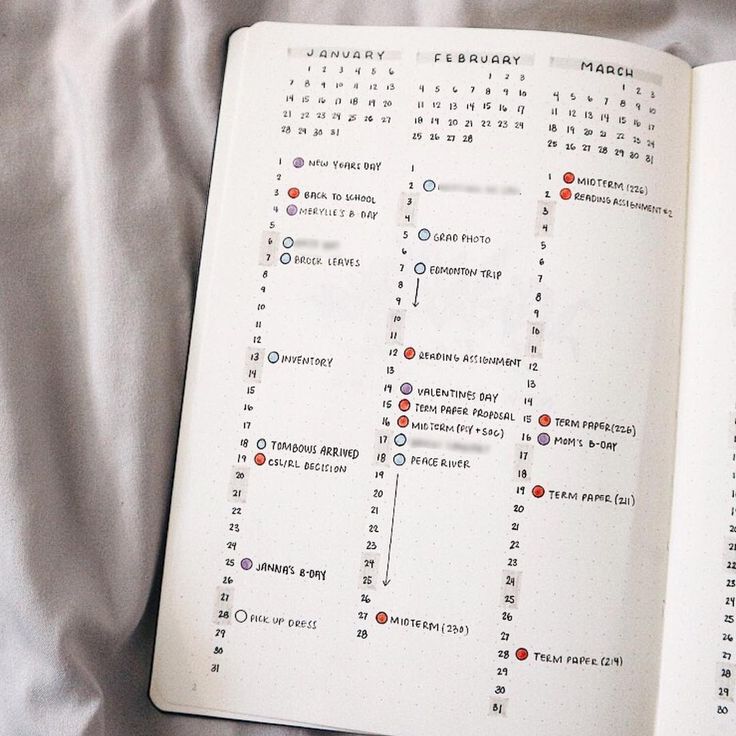 JANUARY
1 2 3 4 5 6
7 8 9 10 11 12 13
14 15 16 17 18 19 20
21 22 23 24 25 26 27
28 29 30 31
1 NEW YEARS DAY
2
3 BACK TO SCHOOL
4 MERYLLE'S B-DAY
5
6
7 BROCK LEAVES
8
9
10
11
12
13 INVENTORY
14
15
16
17
18 TOMBOWS ARRIVED
19 CSL/RL DECISION
20
21
22
23
24
25 JANNA'S B-DAY
26
27
28 PICK UP DRESS
29
30
31
2
FEBRUARY
1 2 3
4 5 6 7 8 9 10
11 12 13 14 15 16 17
18 19 20 21 22 23 24
25 26 27 28
1
2
3
4
5 GRAD PHOTO
6
7 EDMONTON TRIP
8
9
10
11
12 READING ASSIGNMENT
13
14 VALENTINES DAY
15 TERM PAPER PROPOSAL
16 MIDTERM (PSY + SOC)
17
18 PEACE RIVER
19
20
21
22
23
24
25
26
27 MIDTERM (230)
28
MARCH
1 2 3
4 5 6 7 8 9 10
11 12 13 14 15 16 17
18 19 20 21 22 23 24
25 26 27 28 29 30 31
1 MIDTERM (226)
2 READING ASSIGNMENT #2
3
4
5
6
7
8
9
10
11
12
13
14
15 TERM PAPER (226)
16 MOM'S B-DAY
17
18
19 TERM PAPER (211)
20
21
22
23
24
25
26
27
28 TERM PAPER (214)
29
30
31
22
23
24
25
26
27
28
29
30